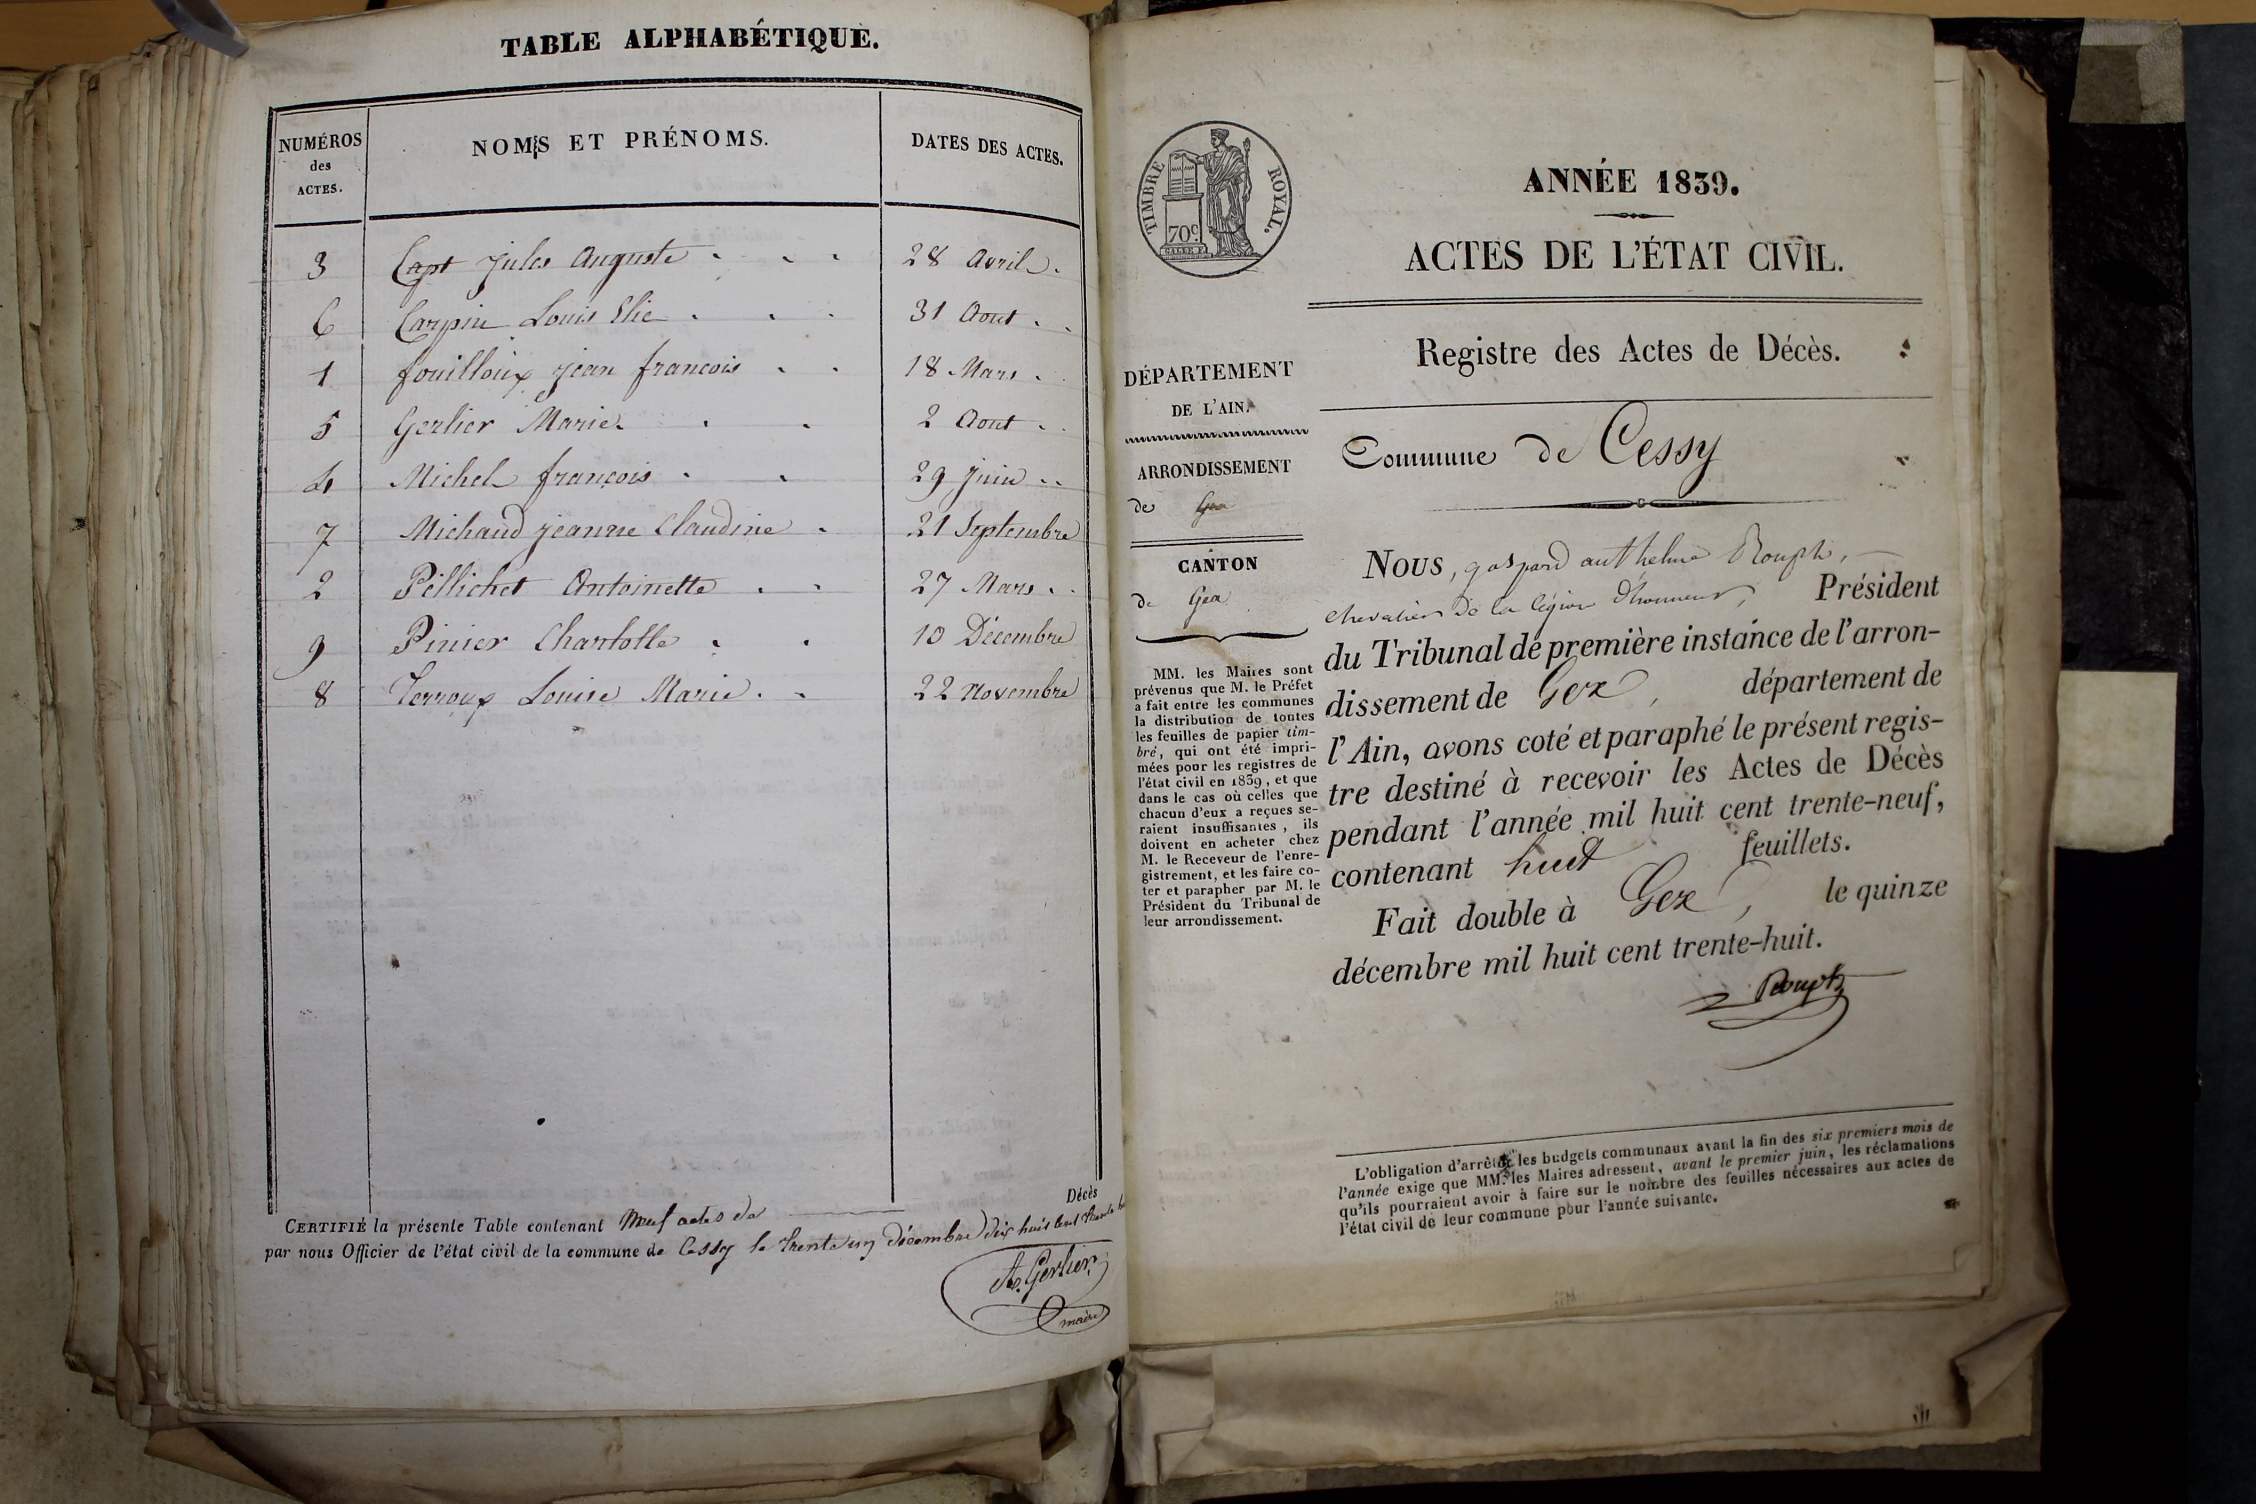 TABLE ALPHABÉTIQUE.
NUMÉROS
des
ACTES.
NOMS ET PRÉNOMS.
DATES DES ACTES.
3 Capt Jules Auguste 28 Avril.
6 Carpin Louis Elie 31 Aout
1 fouilloux jean francois 18 Mars
5 Gerlier Marie 2 Aout
4 Michel françois 29 juin
7 Michaud jeanne Claudine 21 Septembre
2 Pellichet Antoinette 27 Mars
9 Pinier Charlotte 10 Décembre
8 Terroux Louise Marie 22 Novembre
Décès
CERTIFIÉ la présente Table contenant Neuf actes de
par nous Officier de l'état civil de la commune de Cessy le trente un décembre dix huit cent trente
A. Gerlier
maire
TIMBRE ROYAL.
70c
ANNÉE 1839.
ACTES DE L'ÉTAT CIVIL.
Registre des Actes de Décès.
DÉPARTEMENT
DE L'AIN.
ARRONDISSEMENT
de Gex
CANTON
de Gex
MM. les Maires sont
prévenus que M. le Préfet
a fait entre les communes
la distribution de toutes
les feuilles de papier tim-
bré, qui ont été impri-
mées pour les registres de
l'état civil en 1839, et que
dans le cas où celles que
chacun d'eux a reçues se-
raient insuffisantes, ils
doivent en acheter chez
M. le Receveur de l'enre-
gistrement, et les faire co-
ter et parapher par M. le
Président du Tribunal de
leur arrondissement.
Commune de Cessy
Nous, gaspard anthelme Rouph,
chevalier de la légion d'honneur, Président
du Tribunal de première instance de l'arron-
dissement de Gex, département de
l'Ain, avons coté et paraphé le présent regis-
tre destiné à recevoir les Actes de Décès
pendant l'année mil huit cent trente-neuf,
contenant huit feuillets.
Fait double à Gex, le quinze
décembre mil huit cent trente-huit.
Rouph
L'obligation d'arrêter les budgets communaux avant la fin des six premiers mois de
l'année exige que MM. les Maires adressent, avant le premier juin, les réclamations
qu'ils pourraient avoir à faire sur le nombre des feuilles nécessaires aux actes de
l'état civil de leur commune pour l'année suivante.